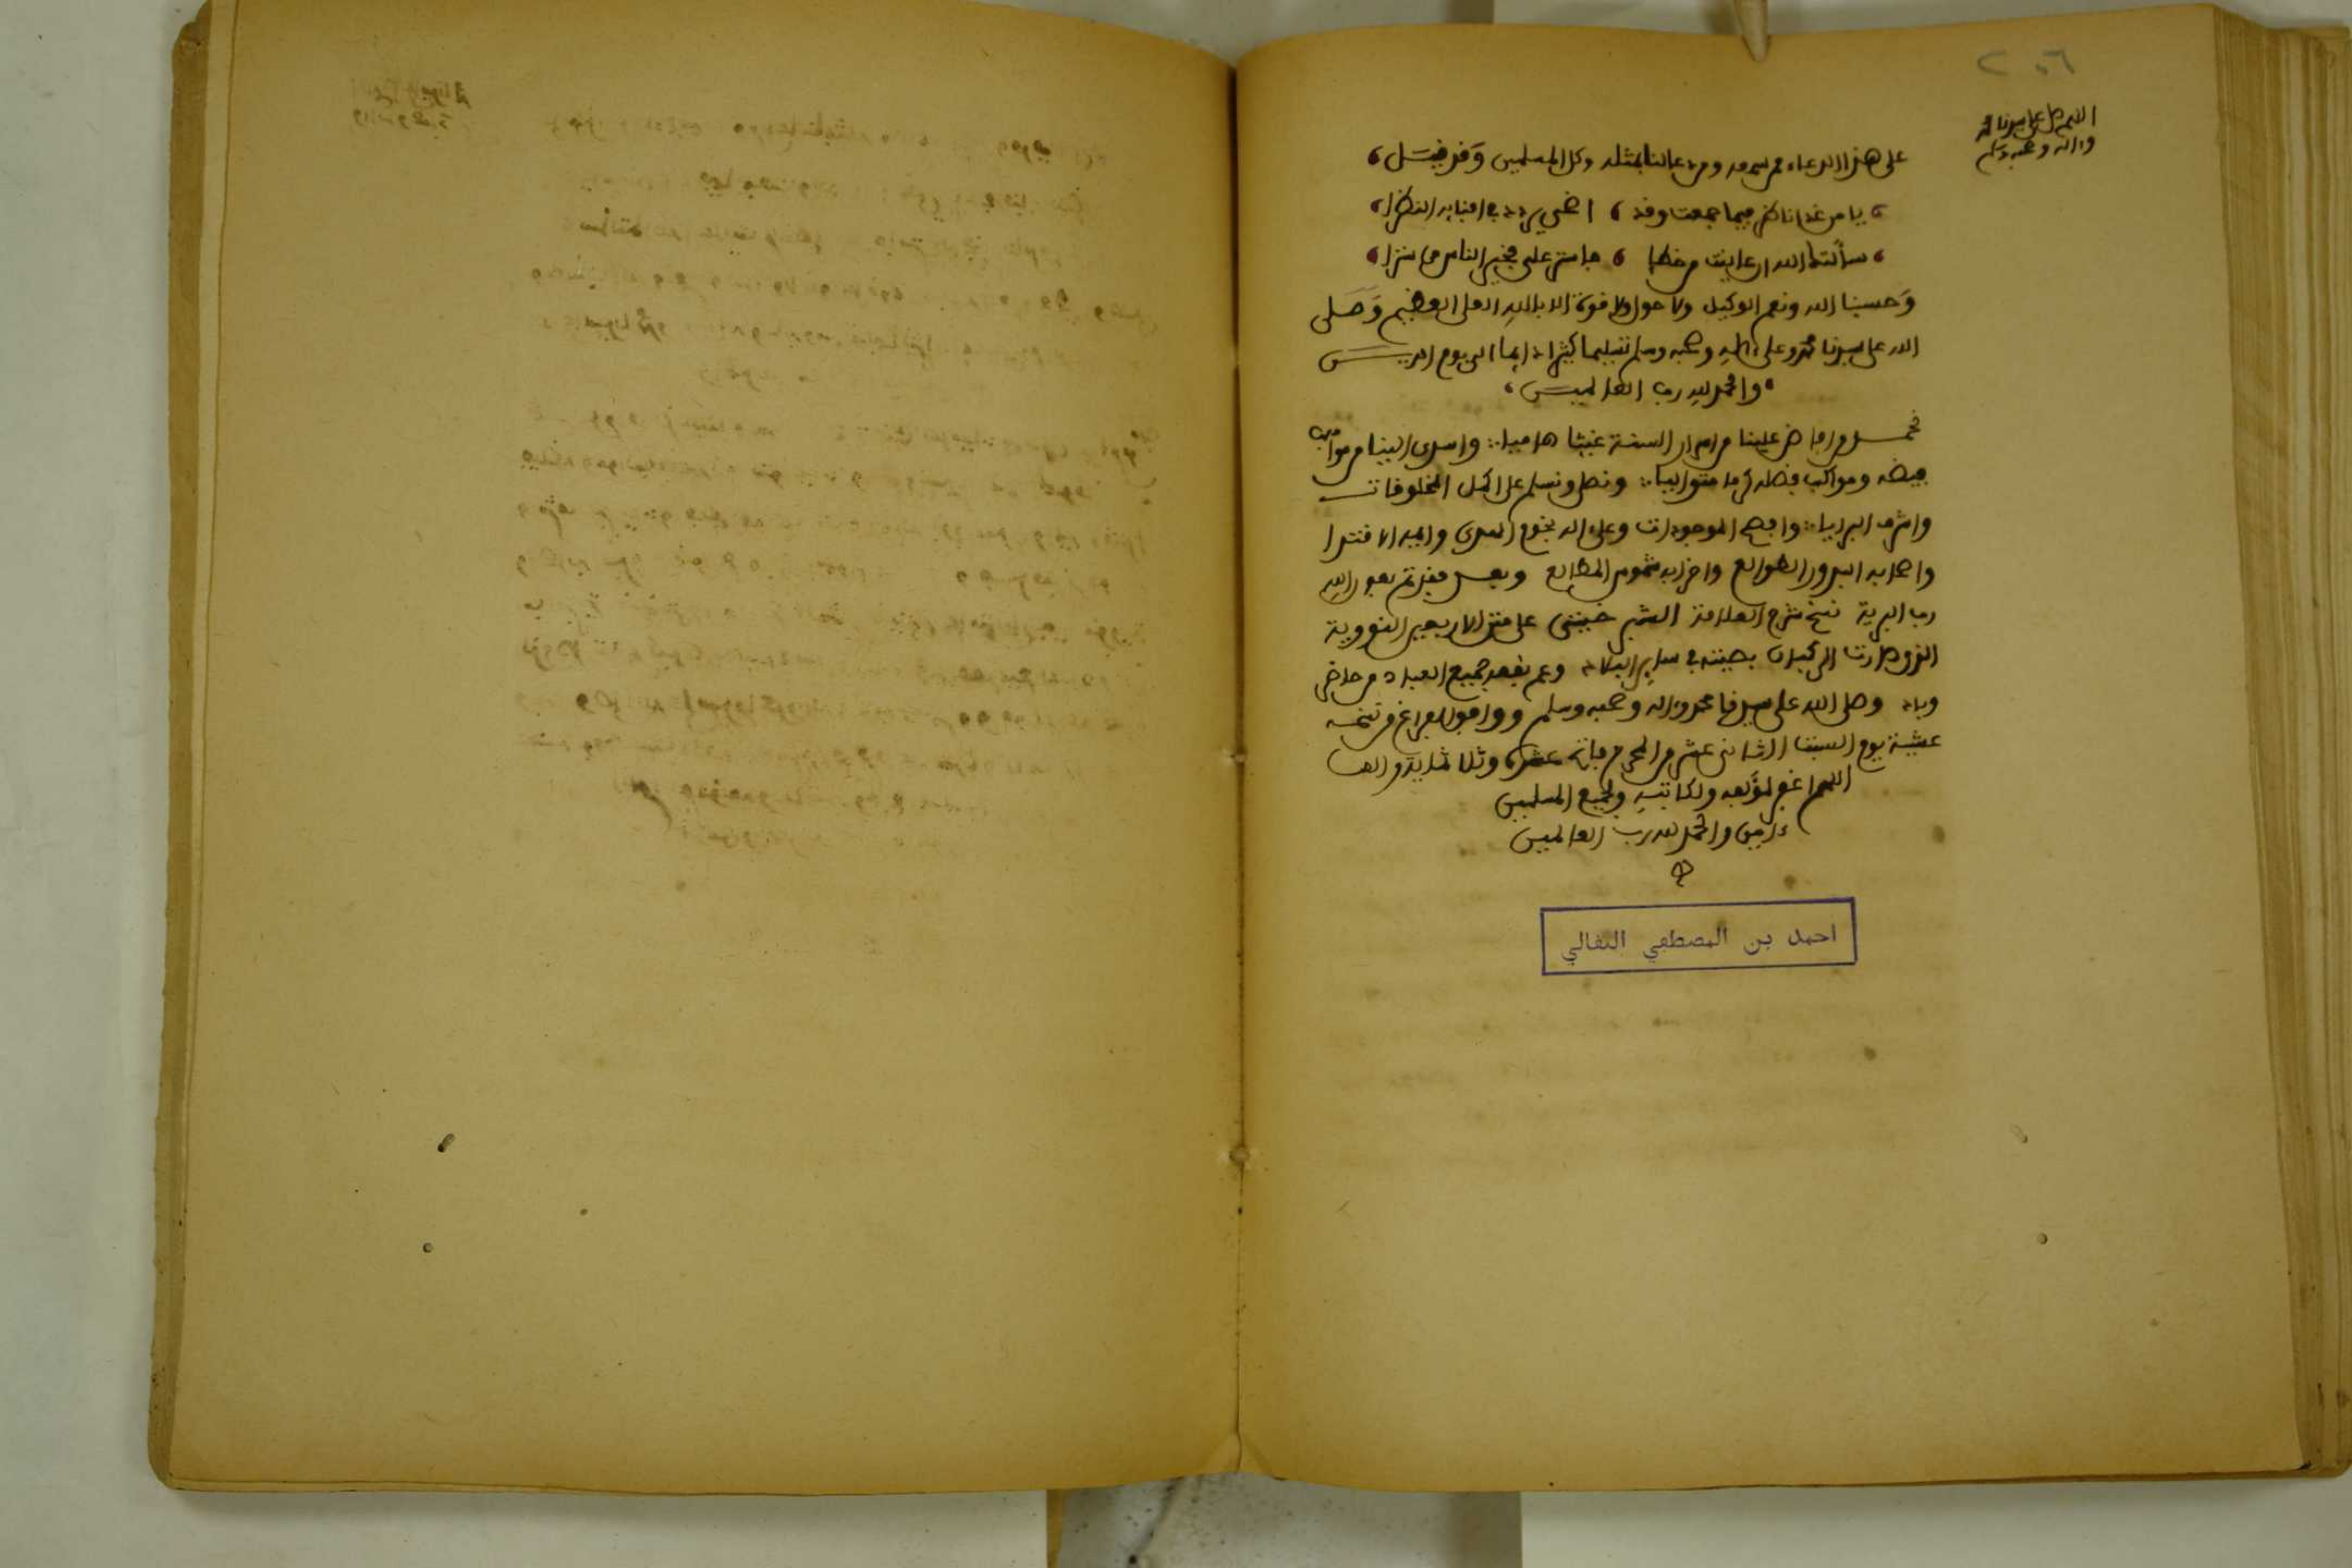 ٢٠٦
اللهم صل على سيدنا محمد
وءاله وصحبه وسلم
على هذا الدعاء ممن سمعه ودعا لنا بمثله وكل المسلمين وقد قيل
يا من غدا ناظرا فيما جمعت وقد ، اضحى يردد في اثنايه النظرا
سألتك الله ان عاينت من خطإ ، فاستر علي فخير الناس من سترا
وحسبنا الله ونعم الوكيل ولا حول ولا قوة الا بالله العلي العظيم وصلى
الله على سيدنا محمد وعلى ءاله وصحبه وسلم تسليما كثيرا دايما الى يوم الدين
والحمد لله رب العالمين
نحمد من افاض علينا من امداد السنة غيثا هاميا واسدى الينا من مواهب
فيضه ومواكب فضله كرما متواليا ونصلي ونسلم على اكمل المخلوقات
واشرف البرايا وافصح الموجودات وعلى ءاله نجوم الهدى واهل الاقتدا
واصحابه البدور الطوالع واحزابه شموس المطالع وبعد فقد تم بعون الله
رب البرية نسخ شرح العلامة الشبرخيتي على متن الاربعين النووية
الذي طارت الركبان بصيته في ساير البلاد وعم نفعه جميع العباد من حاضر
وباد وصلى الله على سيدنا محمد وءاله وصحبه وسلم ووافق الفراغ من نسخه
عشية يوم السبت الثاني عشر من المحرم فاتح عشرة وثلاثماية والف
اللهم اغفر لمؤلفه ولكاتبه ولجميع المسلمين
ءامين والحمد لله رب العالمين
احمد بن المصطفي